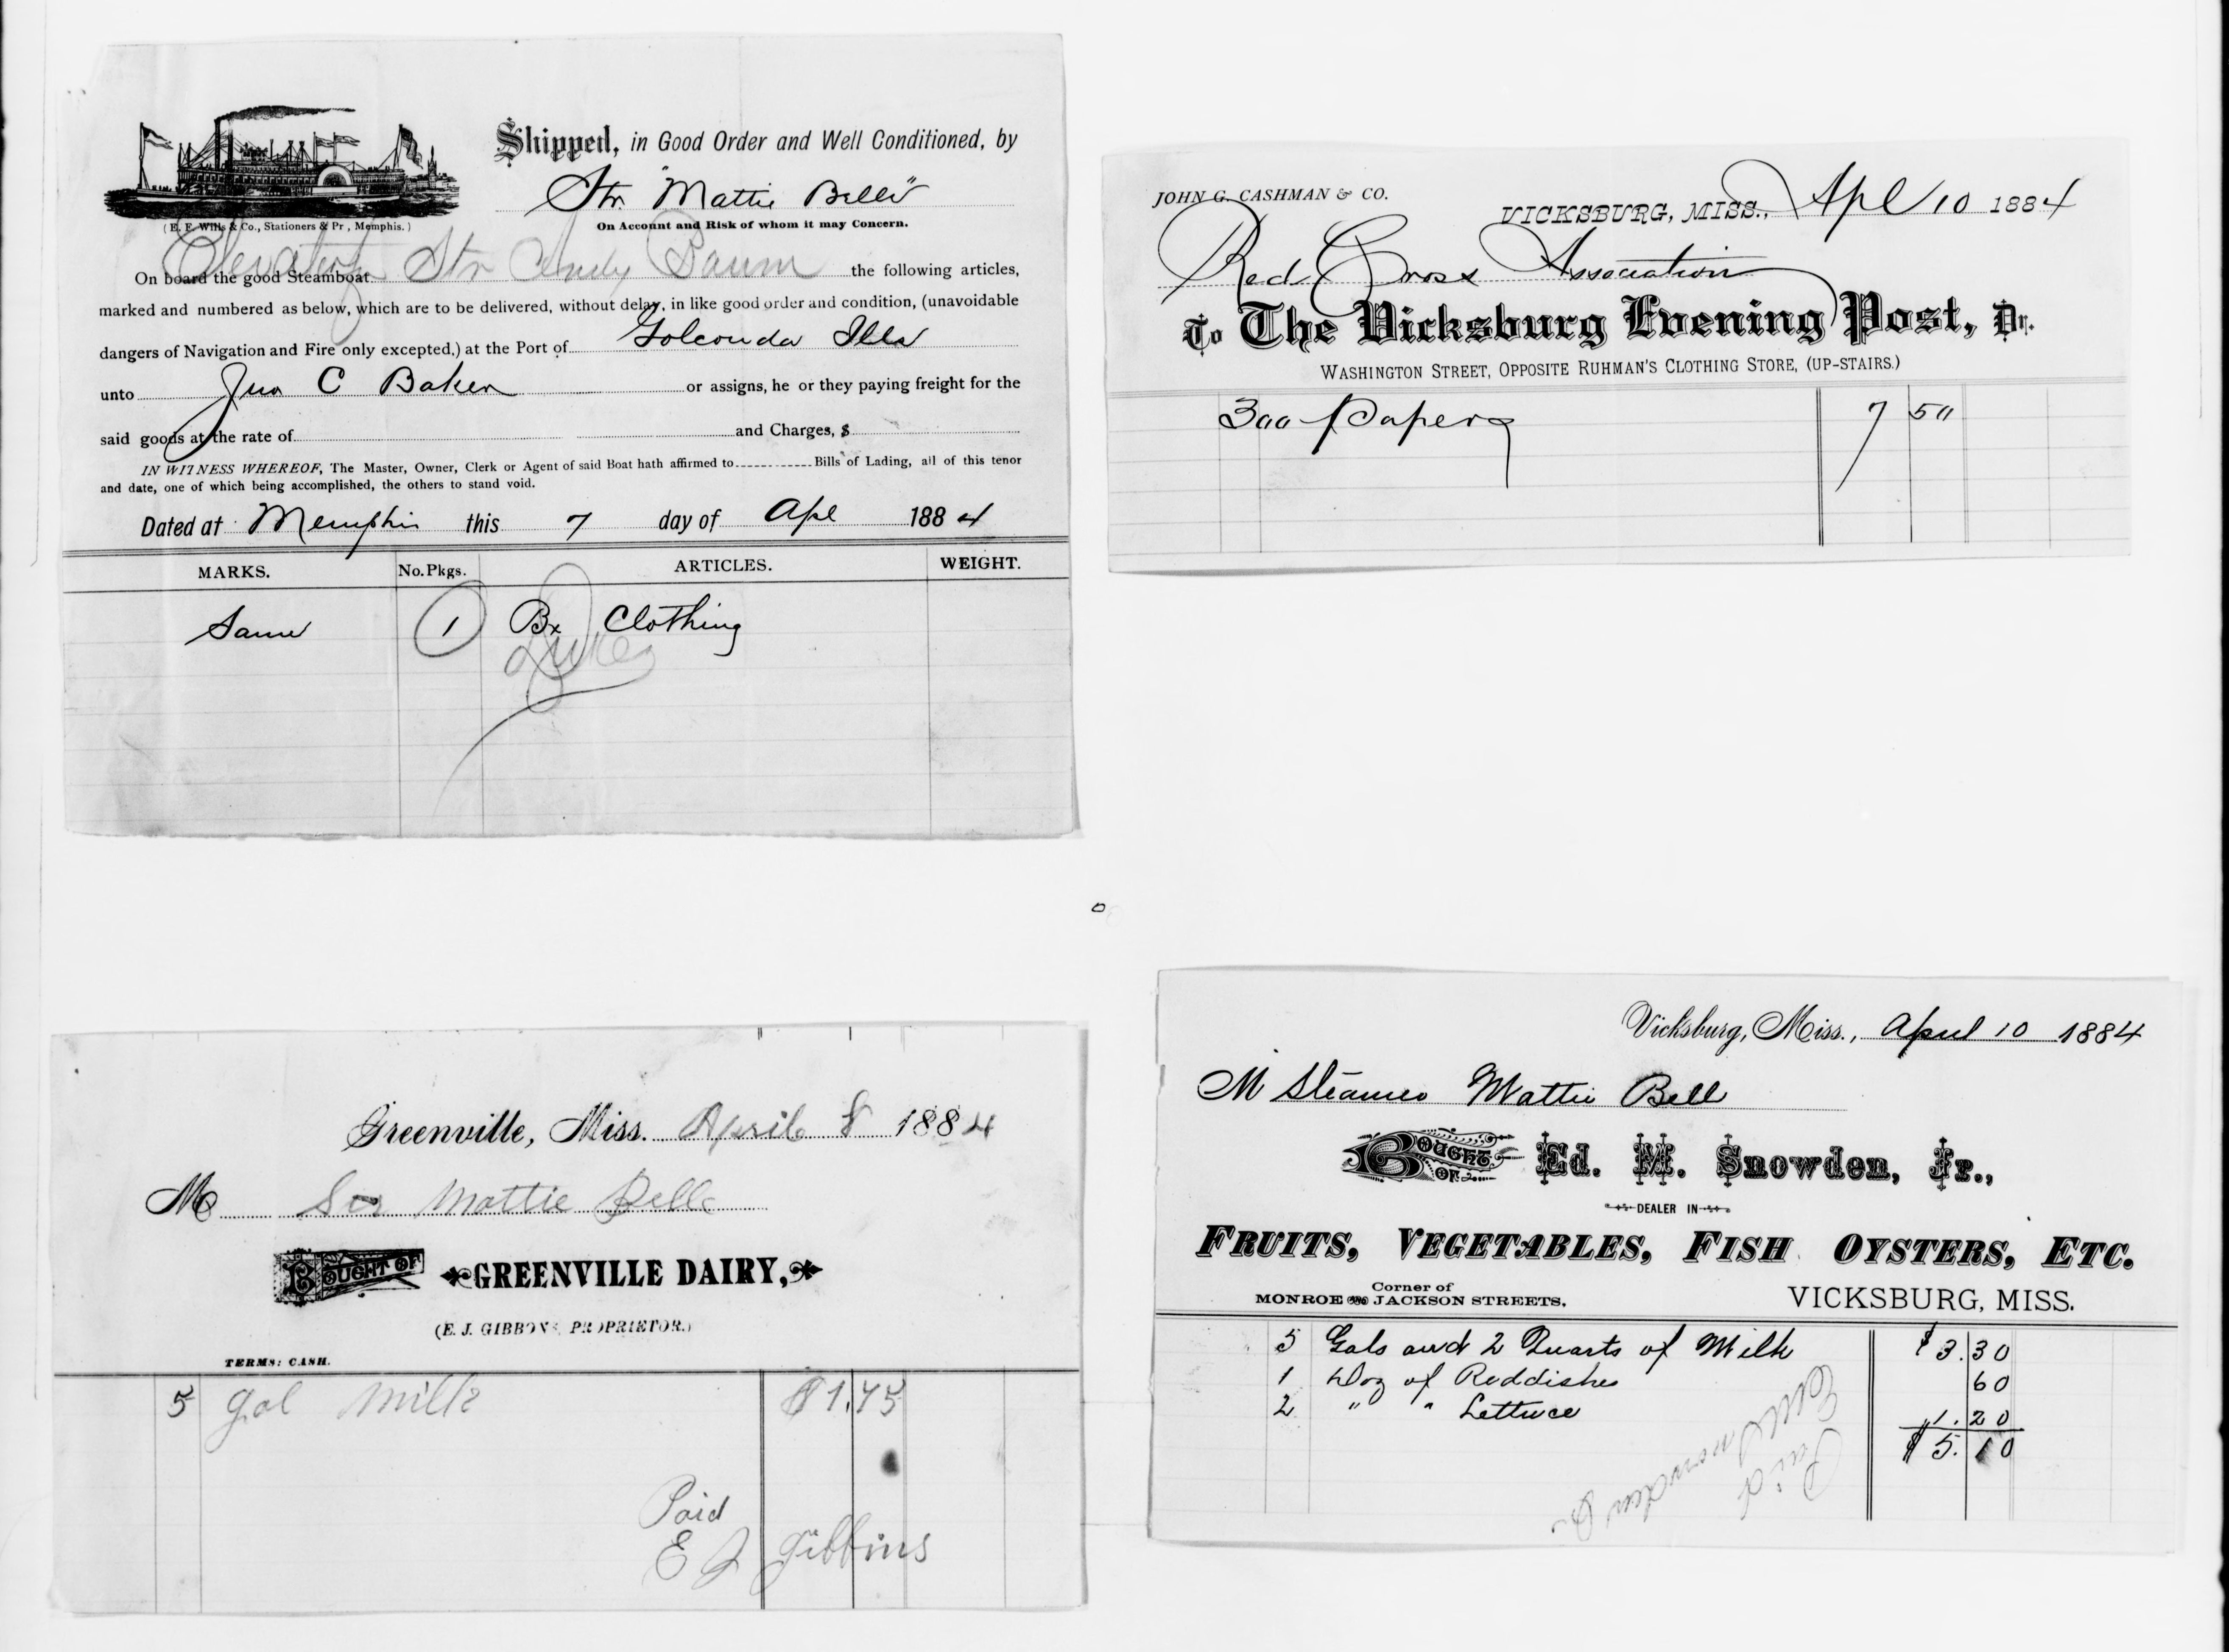 Shipped, in Good Order and Well Conditioned, by
Str "Mattie Belle"
(E. F. Wills & Co., Stationers & Pr, Memphis.)
On Account and Risk of whom it may Concern.
Elevator
On board the good Steamboat Str Andy Baum the following articles,
marked and numbered as below, which are to be delivered, without delay, in like good order and condition, (unavoidable
dangers of Navigation and Fire only excepted,) at the Port of Golconda Ills
unto Jno C Baker or assigns, he or they paying freight for the
said goods at the rate of and Charges, $
IN WITNESS WHEREOF, The Master, Owner, Clerk or Agent of said Boat hath affirmed to Bills of Lading, all of this tenor
and date, one of which being accomplished, the others to stand void.
Dated at Memphis this 7 day of Apl 1884
MARKS. No. Pkgs. ARTICLES. WEIGHT.
Same 1 Bx Clothing
JOHN G. CASHMAN & CO.
VICKSBURG, MISS., Apl 10 1884
Red Cross Association
To The Vicksburg Evening Post, Dr.
WASHINGTON STREET, OPPOSITE RUHMAN'S CLOTHING STORE, (UP-STAIRS.)
300 papers 7 50
Greenville, Miss. April 8 1884
M Str Mattie Belle
BOUGHT OF GREENVILLE DAIRY,
(E. J. GIBBONS PROPRIETOR.)
TERMS: CASH.
5 gal milk $1.75
Paid
E J Gibbins
Vicksburg, Miss., April 10 1884
M Steamer Mattie Bell
BOUGHT OF Ed. M. Snowden, Jr.,
DEALER IN
FRUITS, VEGETABLES, FISH OYSTERS, ETC.
Corner of
MONROE and JACKSON STREETS. VICKSBURG, MISS.
5 Gals and 2 Quarts of Milk $3.30
1 Doz of Reddishes 60
2 " " Lettuce 1.20
$5.10
Paid
Ed M Snowden Jr